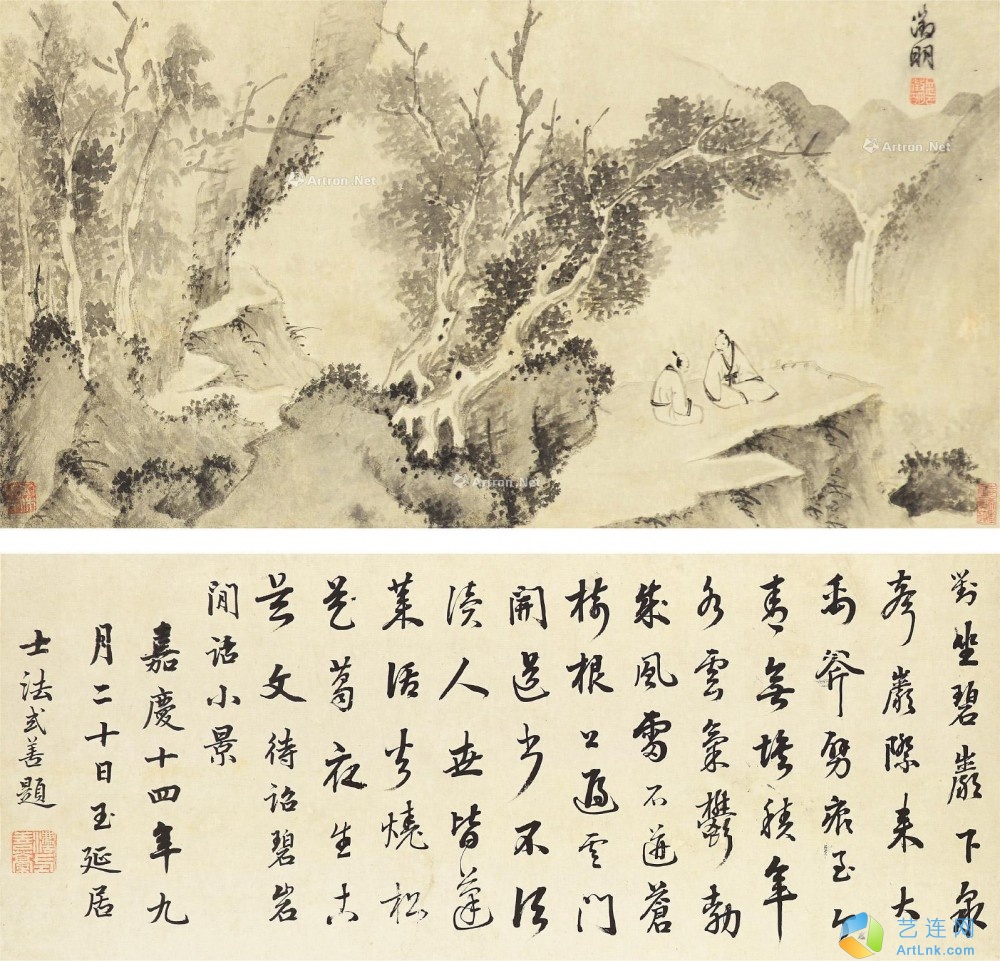 徵明
對坐碧巖下泉
奔巖際来大
禹斧劈痕至今
青無 積年
多雲氣鬱勃
成風雷石迸蒼
根 雲門
開 步不須
人世皆蓬
莱活火燒松
花 夜生古
苔文待詔碧岩
閒話小景
嘉慶十四年九
月二十日玉延居
士法式善題
Artron.Net
Artron.Net
Artron.Net
艺连网
ArtLnk.com